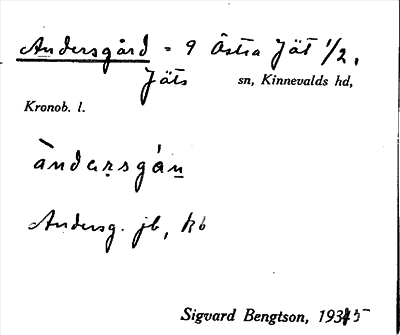 Andersgård = 9 Östra Jät 1/2,
Jäts sn, Kinnevalds hd,
Kronob. l.
àndęrsgán
Andersg. jb, kb
Sigvard Bengtson, 1935